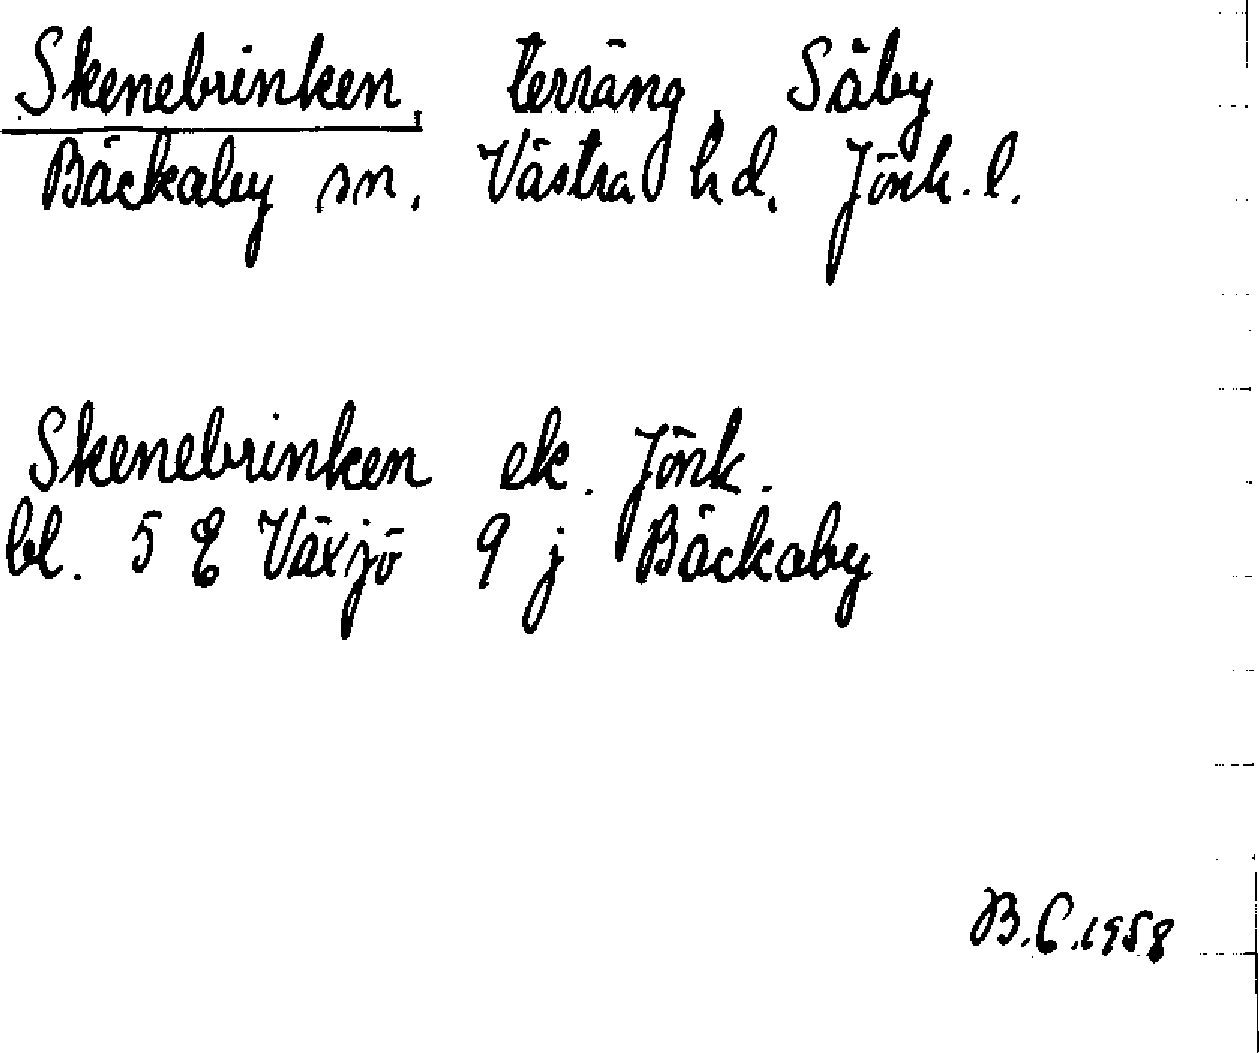 Skenebrinken, terräng, Säby
Bäckaby sn. Västra hd. Jönk. l.
Skenebrinken ek. Jönk.
bl. 5 E Växjö 9 j Bäckaby
B.C.1958